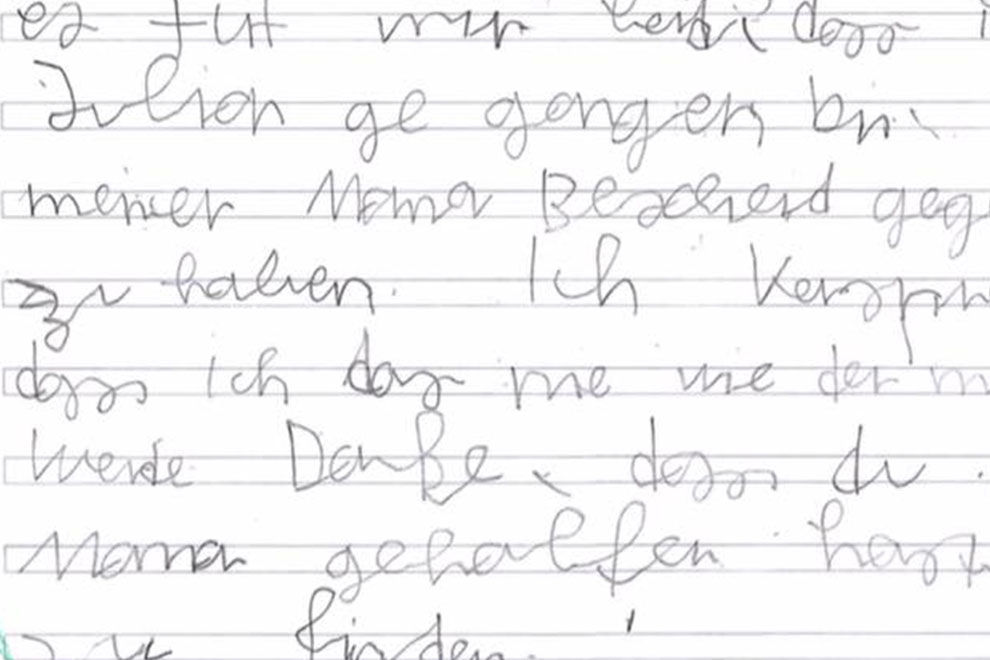 es tut mir leid, dass i
Julian ge gangen bin
meiner Mama Bescheid geg
zu haben. Ich Verspr
dass ich das nie wie der m
werde Danke, dass du
Mama gehalfen hast
zu finden!